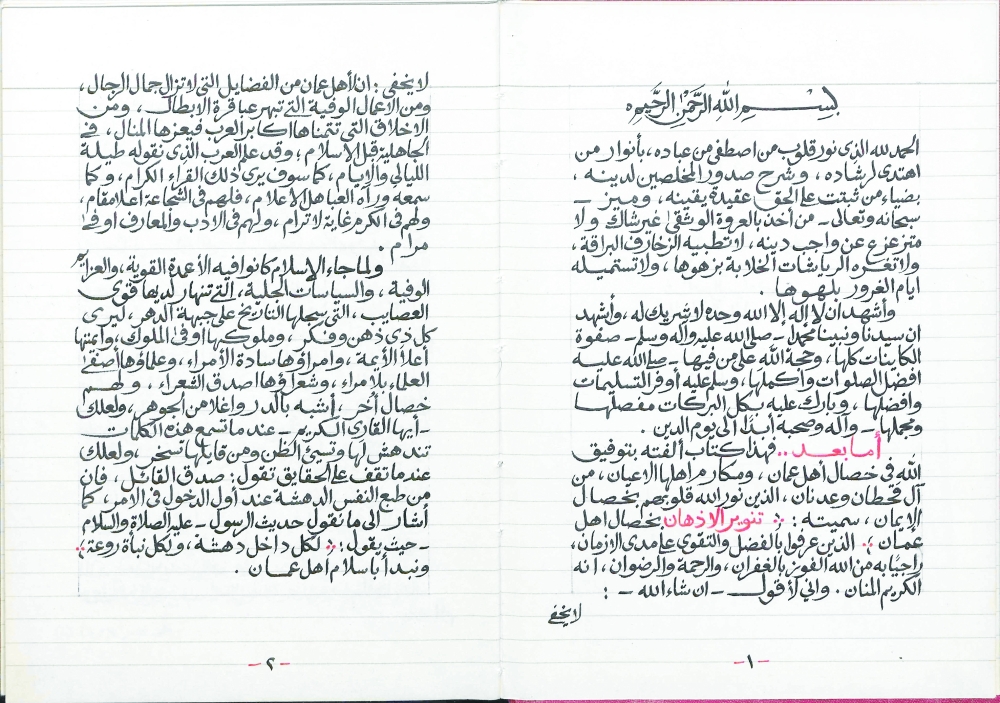 بسم الله الرحمن الرحيم
الحمد لله الذي نور قلوب من اصطفى من عباده، بأنوار من
اهتدى لرشاده، وشرح صدور المخلصين لدينه،
بضياء من ثبتت على الحق عقيدة يقينه، وميز -
سبحانه وتعالى - من أخذ بالعروة الوثقى غير شاك ولا
متزعزع عن واجب دينه، لا تطبيه الزخارف البراقة،
ولا تغره الرياشات الخلابة بزهوها، ولا تستميله
ايام الغرور بلهوها.
وأشهد ان لا إله إلا الله وحده لا شريك له، وأشهد
ان سيدنا ونبينا محمدا - صلى الله عليه وآله وسلم - صفوة
الكاينات كلها، وحجة الله على من فيها - صلى الله عليه
افضل الصلوات وأكملها، وسلم عليه أوفر التسليمات
وافضلها، وبارك عليه بكل البركات مفصلها
ومجملها - وآله وصحبه أبدًا الى يوم الدين.
أما بعد .. فهذا كتاب ألفته بتوفيق
الله في خصال أهل عمان، ومكارم اهلها الاعيان، من
آل قحطان وعدنان، الذين نور الله قلوبهم بخصال
الإيمان، سميته: تنوير الاذهان بخصال اهل
عمان؛ الذين عرفوا بالفضل والتقوى على مدى الازمان،
راجيًا به من الله الفوز بالغفران، والرحمة والرضوان، انه
الكريم المنان. واني لأقول - ان شاء الله - :
لا يخفى
-١-
لا يخفى: ان لأهل عمان من الفضايل التي لا تزال جمال الرجال،
ومن الاعمال الوفية التي تبهر عباقرة الابطال، ومن
الاخلاق التي تتمناها اكابر العرب فيعزها المنال، في
الجاهلية قبل الاسلام؛ وقد علم العرب الذي نقوله طيلة
الليالي والايام، كما سوف يرى ذلك القراء الكرام، وكما
سمعه ورآه العباهل الاعلام، فلهم في الشجاعة اعلا مقام،
ولهم في الكرم غاية لا ترام، ولهم في الادب والمعارف اوفى
مرام.
ولما جاء الإسلام كانوا فيه الأعمدة القوية، والعزايم
الوفية، والسياسات الجلية، التي تنهار لديها قوى
العصايب، التي سجلها التاريخ على جبهة الدهر، ليرى
كل ذي ذهن وفكر، وملوكها اوفى الملوك، وأئمتها
أعلا الأيمة، وامراؤها سادة الأمراء، وعلماؤها أصفى
العلماء بلا مراء، وشعراؤها اصدق الشعراء، ولهم
خصال أخر، أشبه بالدر واغلا من الجوهر، ولعلك
- أيها القارئ الكريم - عندما تسمع هذه الكلمات
تندهش لها وتسيئ الظن ومن قايلها تسخر، ولعلك
عندما تقف على الحقايق تقول: صدق القائل، فان
من طبع النفس الدهشة عند أول الدخول في الامر، كما
أشار الى ما نقول حديث الرسول - عليه الصلاة والسلام
- حيث يقول: لكل داخل دهشة، ولكل نبأة روعة؛
ونبدأ باسلام اهل عمان.
-٢-